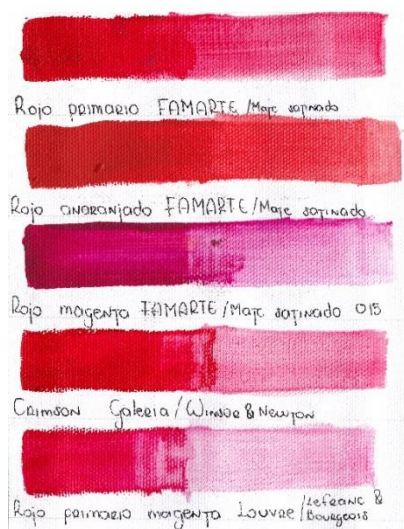 Rojo primario FAMARTE/Mate satinado
Rojo anaranjado FAMARTE/Mate satinado
Rojo magenta FAMARTE/Mate satinado 015
CRIMSON Galeria/Winsor & Newton
Rojo primario magenta Louvre/Lefranc & Bourgeois